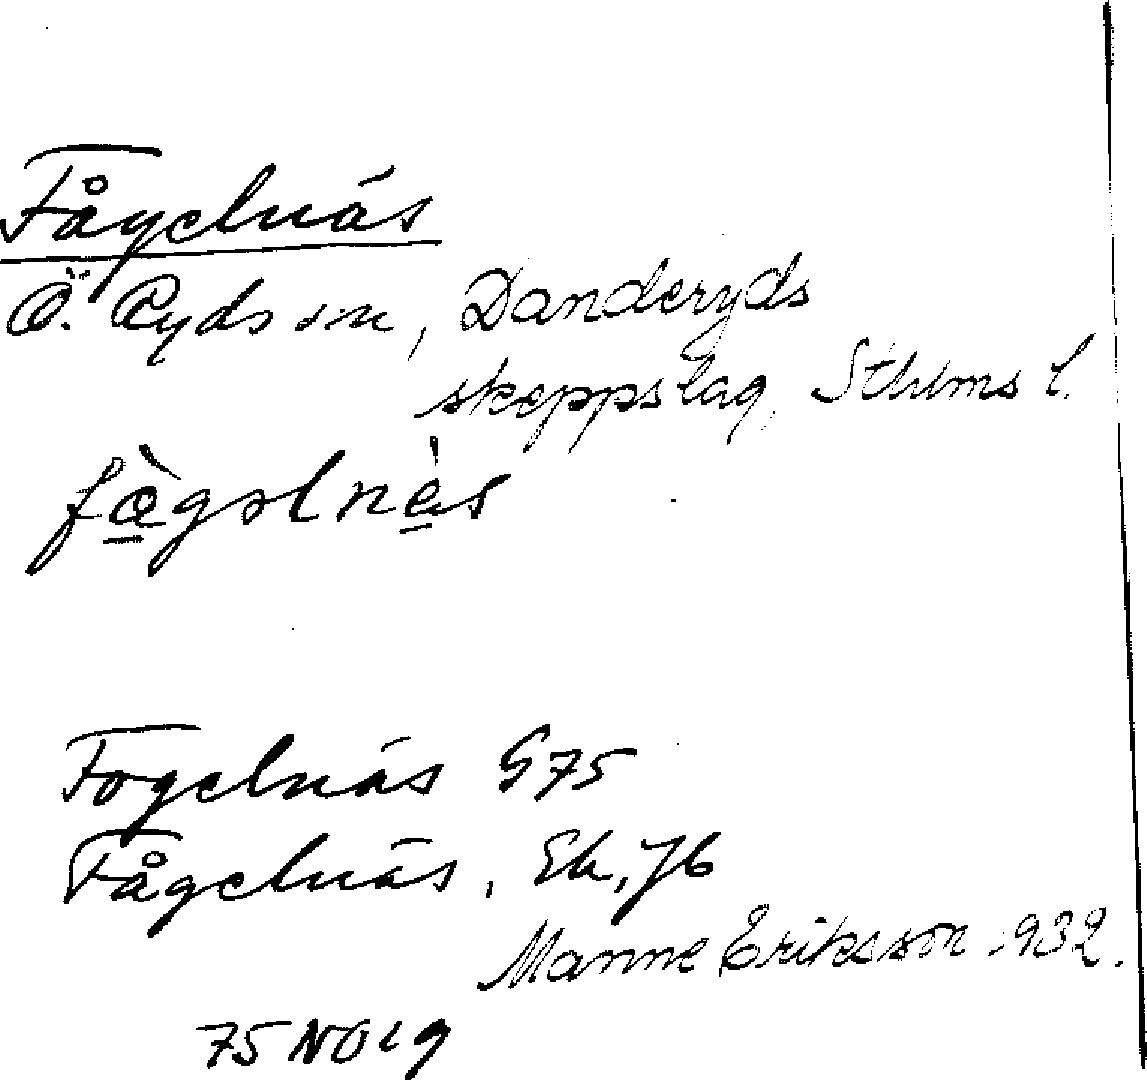 Fågelnäs
Ö. Ryds sn, Danderyds
skeppslag, Sthlms l.
fò̱gəlnè̱s
Fogelnäs G75
Fågelnäs, Ek, Jb
Manne Eriksson 1932.
75 NO i g